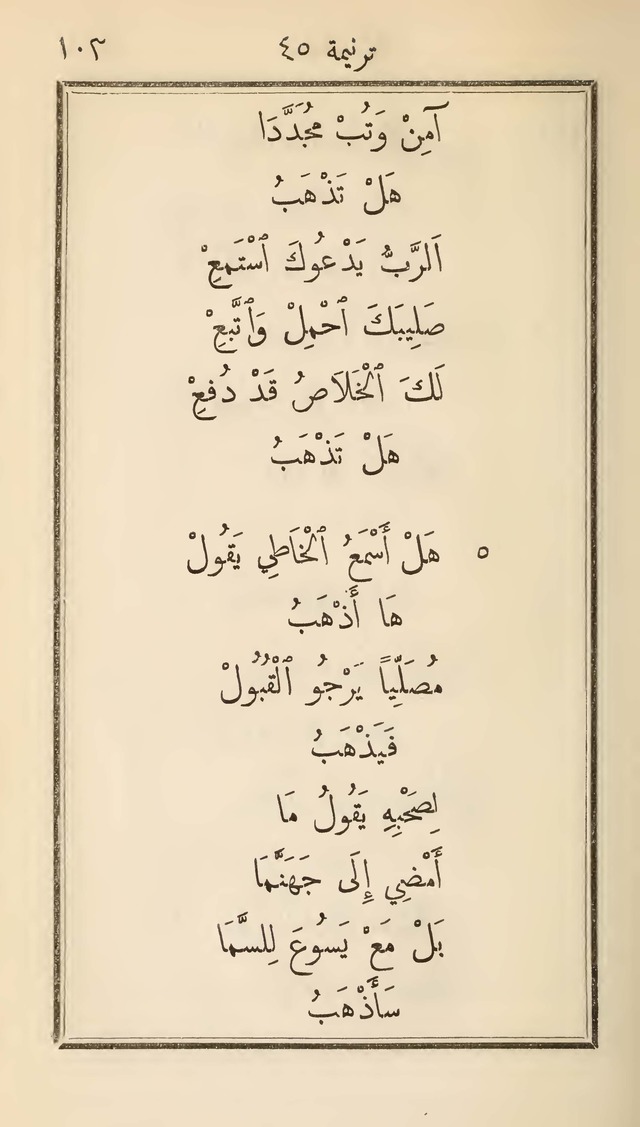 ترنيمة ٤٥ ١٠٣
آمِنْ وَتُبْ مُجَدَّدَا
هَلْ تَذْهَبُ
اَلرَّبُّ يَدْعُوكَ ٱسْتَمِعْ
صَلِيبَكَ ٱحْمِلْ وَٱتَّبِعْ
لَكَ ٱلْخَلَاصُ قَدْ دُفِعْ
هَلْ تَذْهَبُ
٥ هَلْ أَسْمَعُ ٱلْخَاطِي يَقُولْ
هَا أَذْهَبُ
مُصَلِّياً يَرْجُو ٱلْقُبُولْ
فَيَذْهَبُ
لِصَحْبِهِ يَقُولُ مَا
أَمْضِي إِلَى جَهَنَّمَا
بَلْ مَعْ يَسُوعَ لِلسَّمَا
سَأَذْهَبُ